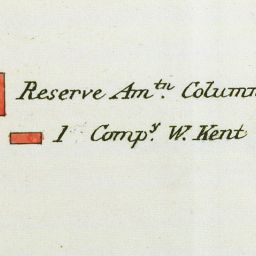 Reserve Amtn. Column
1 Compy. W. Kent